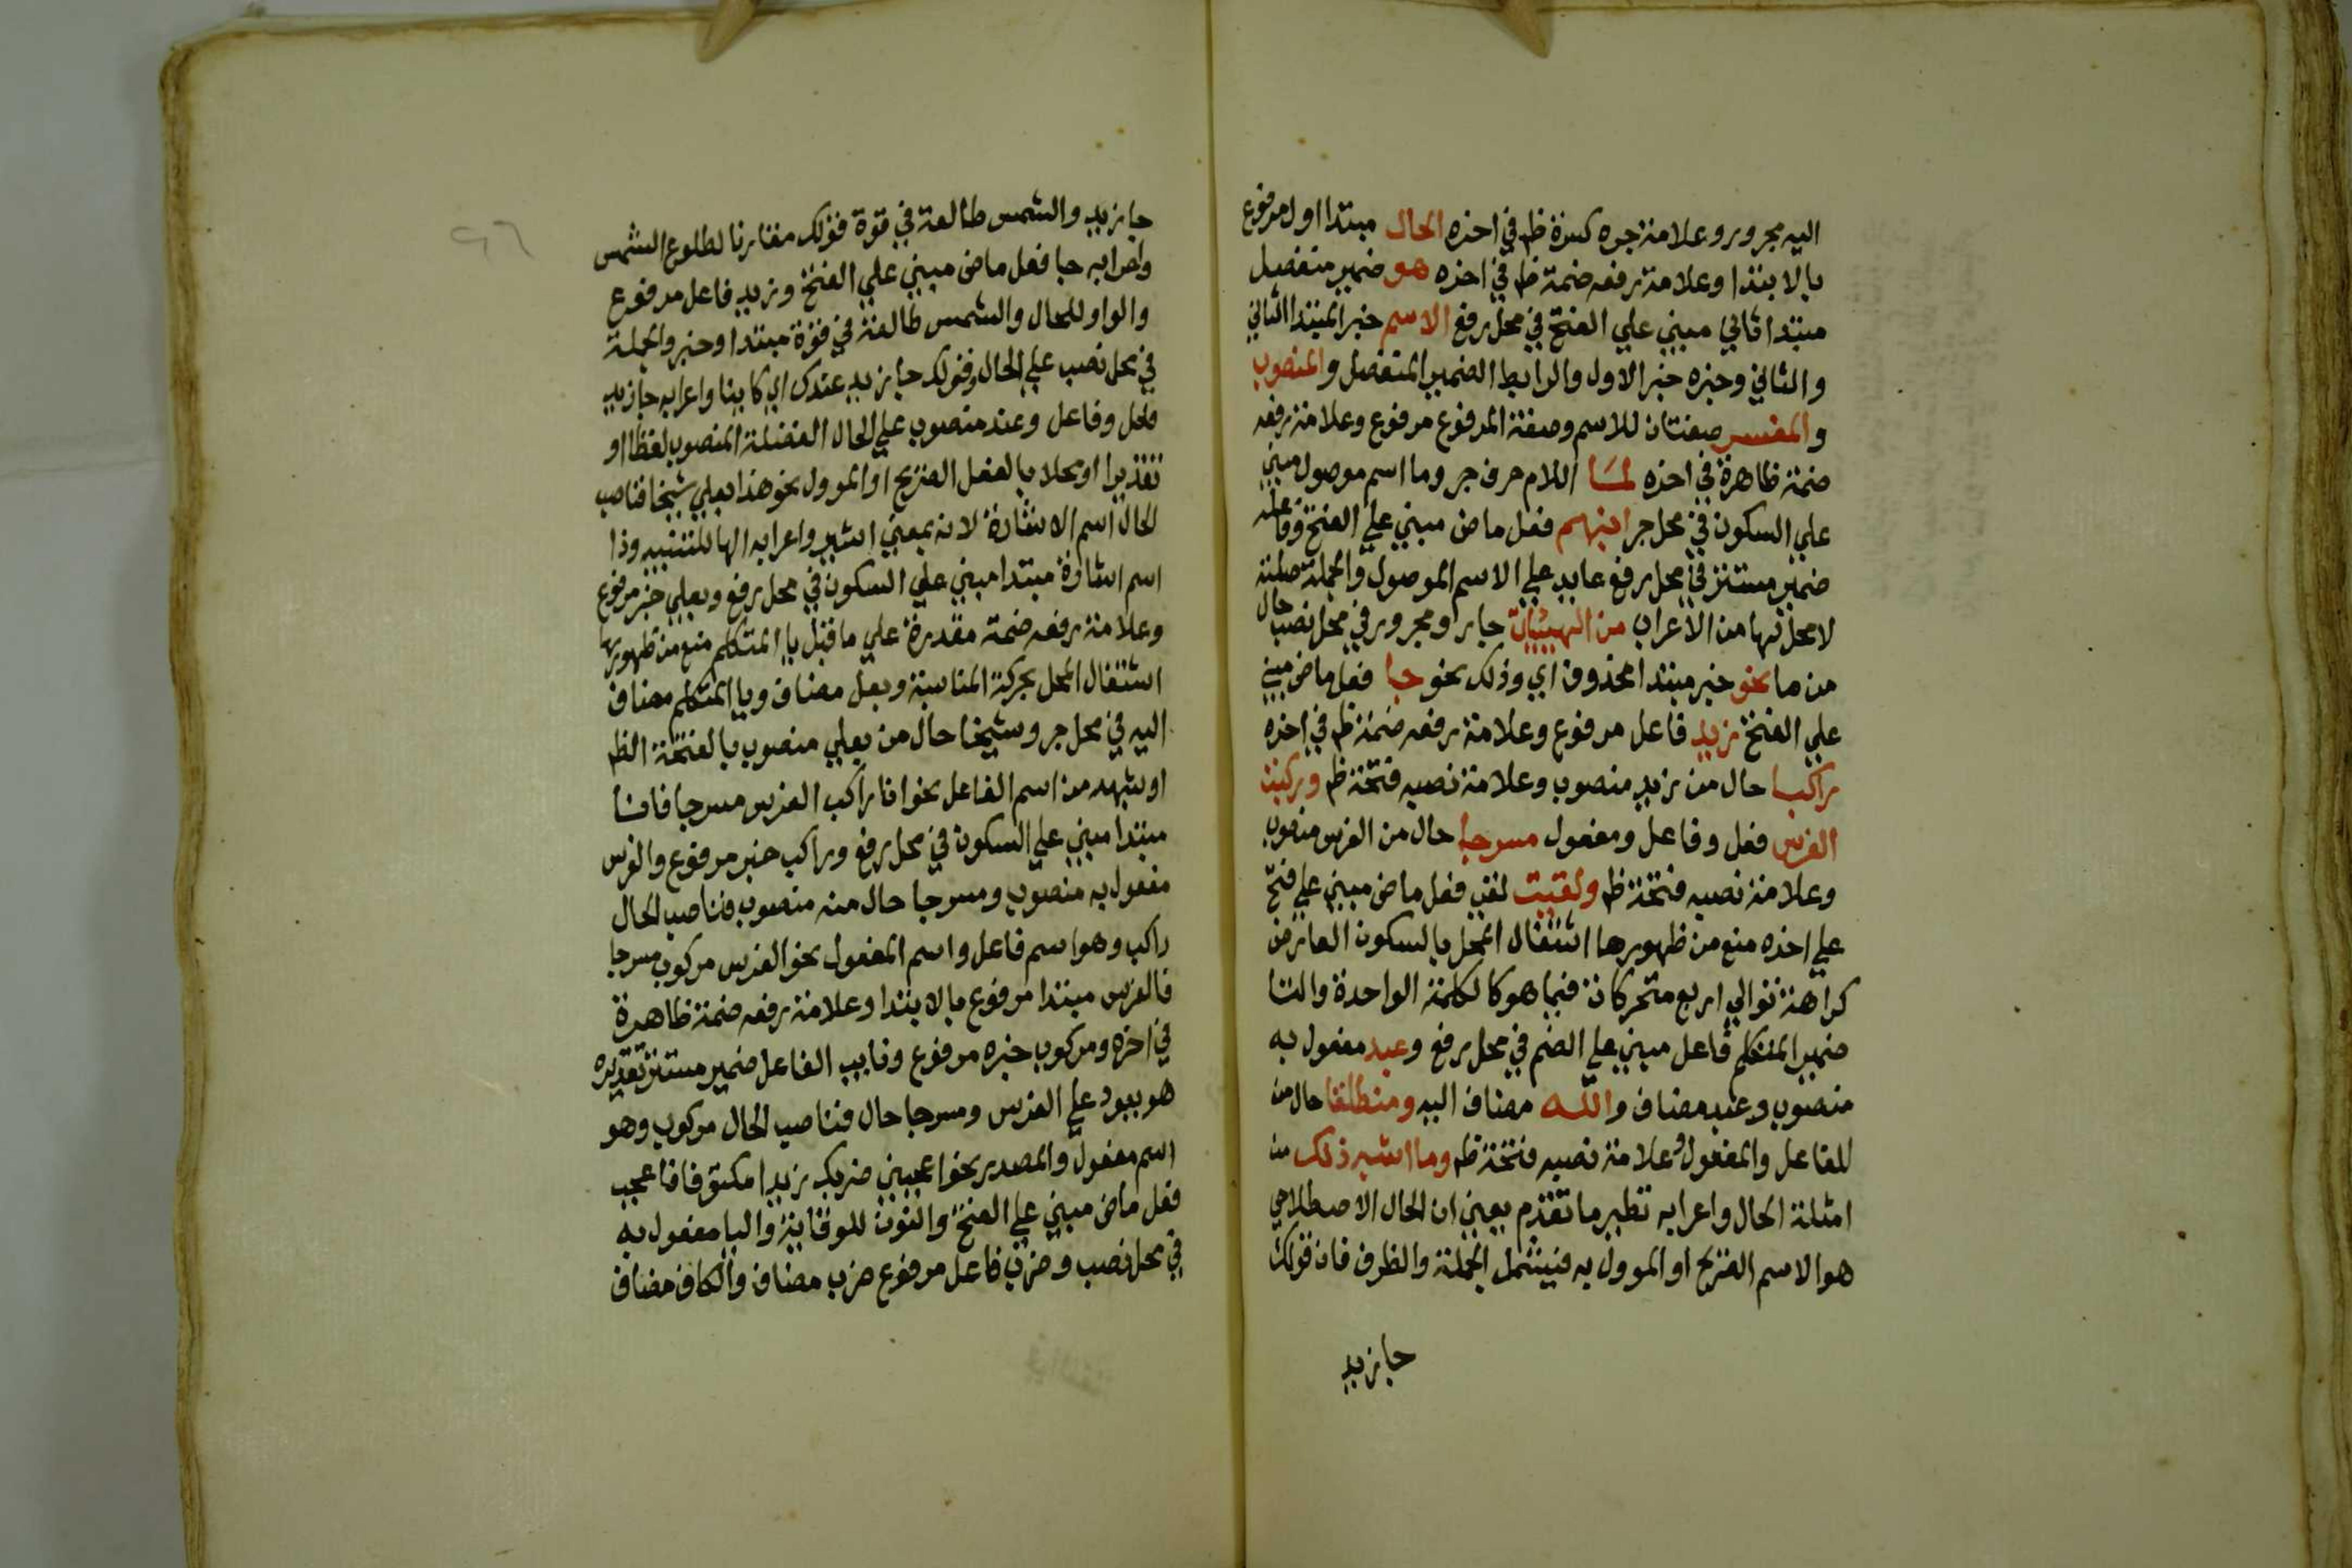 اليه مجرور وعلامة جره كسرة ظ في اخره الحال مبتدا اول مرفوع
بالابتدا وعلامة رفعه ضمة ظ في اخره هو ضمير منفصل
مبتدا ثاني مبني علي الفتح في محل رفع الاسم خبر المبتدا الثاني
والثاني وخبره خبر الاول والرابط الضمير المنفصل والمنصوب
والمفسر صفتان للاسم وصفة المرفوع مرفوع وعلامة رفعه
ضمة ظاهرة في اخره لما اللام حرف جر وما اسم موصول مبني
علي السكون في محل جر انبهم فعل ماض مبني علي الفتح وفاعله
ضمير مستتر في محل رفع عايد علي الاسم الموصول والجملة صلته
لا محل لها من الاعراب من الهيئات جار ومجرور في محل نصب حال
من ما نحو خبر مبتدا محذوف اي وذلك نحو جا فعل ماض مبني
علي الفتح زيد فاعل مرفوع وعلامة رفعه ضمة ظ في اخره
راكبا حال من زيد منصوب وعلامة نصبه فتحة ظ وركبت
الفرس فعل وفاعل ومفعول مسرجا حال من الفرس منصوب
وعلامة نصبه فتحة ظ ولقيت لقي فعل ماض مبني علي فتح
علي اخره منع من ظهورها اشتغال المحل بالسكون العارض
كراهة توالي اربع متحركات فيما هو كالكلمة الواحدة والتا
ضمير المتكلم فاعل مبني علي الضم في محل رفع وعبد مفعول به
منصوب وعبد مضاف والله مضاف اليه ومنطلقا حال من
للفاعل والمفعول وعلامة نصبه فتحة ظ وما اشبه ذلك من
امثلة الحال واعرابه نظير ما تقدم يعني ان الحال الاصطلاحي
هو الاسم الصريح او الموول به فيشمل الجملة والظرف فان قولك
جا زيد
٩٦
جا زيد والشمس طالعة في قوة قولك مقارنا لطلوع الشمس
واعرابه جا فعل ماض مبني علي الفتح وزيد فاعل مرفوع
والواو للحال والشمس طالعة في قوة مبتدا وخبر والجملة
في محل نصب علي الحال وقولك جا زيد عندك اي كاينا واعرابه جا زيد
فعل وفاعل وعند منصوب علي الحال الفضلة المنصوب لفظا او
تقديرا او محلا بالفعل الصريح او الموول نحو هذا بعلي شيخا فناصب
الحال اسم الاشارة لانه بمعني اشير واعرابه الها للتنبيه وذا
اسم اشارة مبتدا مبني علي السكون في محل رفع وبعلي خبر مرفوع
وعلامة رفعه ضمة مقدرة علي ما قبل يا المتكلم منع من ظهورها
اشتغال المحل بحركة المناسبة وبعل مضاف ويا المتكلم مضاف
اليه في محل جر وشيخا حال من بعلي منصوب بالفتحة الظ
او شبهه من اسم الفاعل نحو انا راكب الفرس مسرجا فانا
مبتدا مبني علي السكون في محل رفع وراكب خبر مرفوع والفرس
مفعول به منصوب ومسرجا حال منه منصوب فناصب الحال
راكب وهو اسم فاعل واسم المفعول نحو الفرس مركوب مسرجا
فالفرس مبتدا مرفوع بالابتدا وعلامة رفعه ضمة ظاهرة
في اخره ومركوب خبره مرفوع ونايب الفاعل ضمير مستتر تقديره
هو يعود علي الفرس ومسرجا حال فناصب الحال مركوب وهو
اسم مفعول والمصدر نحو اعجبني ضربك زيدا مكتوفا فاعجب
فعل ماض مبني علي الفتح والنون للوقاية واليا مفعول به
في محل نصب وضرب فاعل مرفوع ضرب مضاف والكاف مضاف